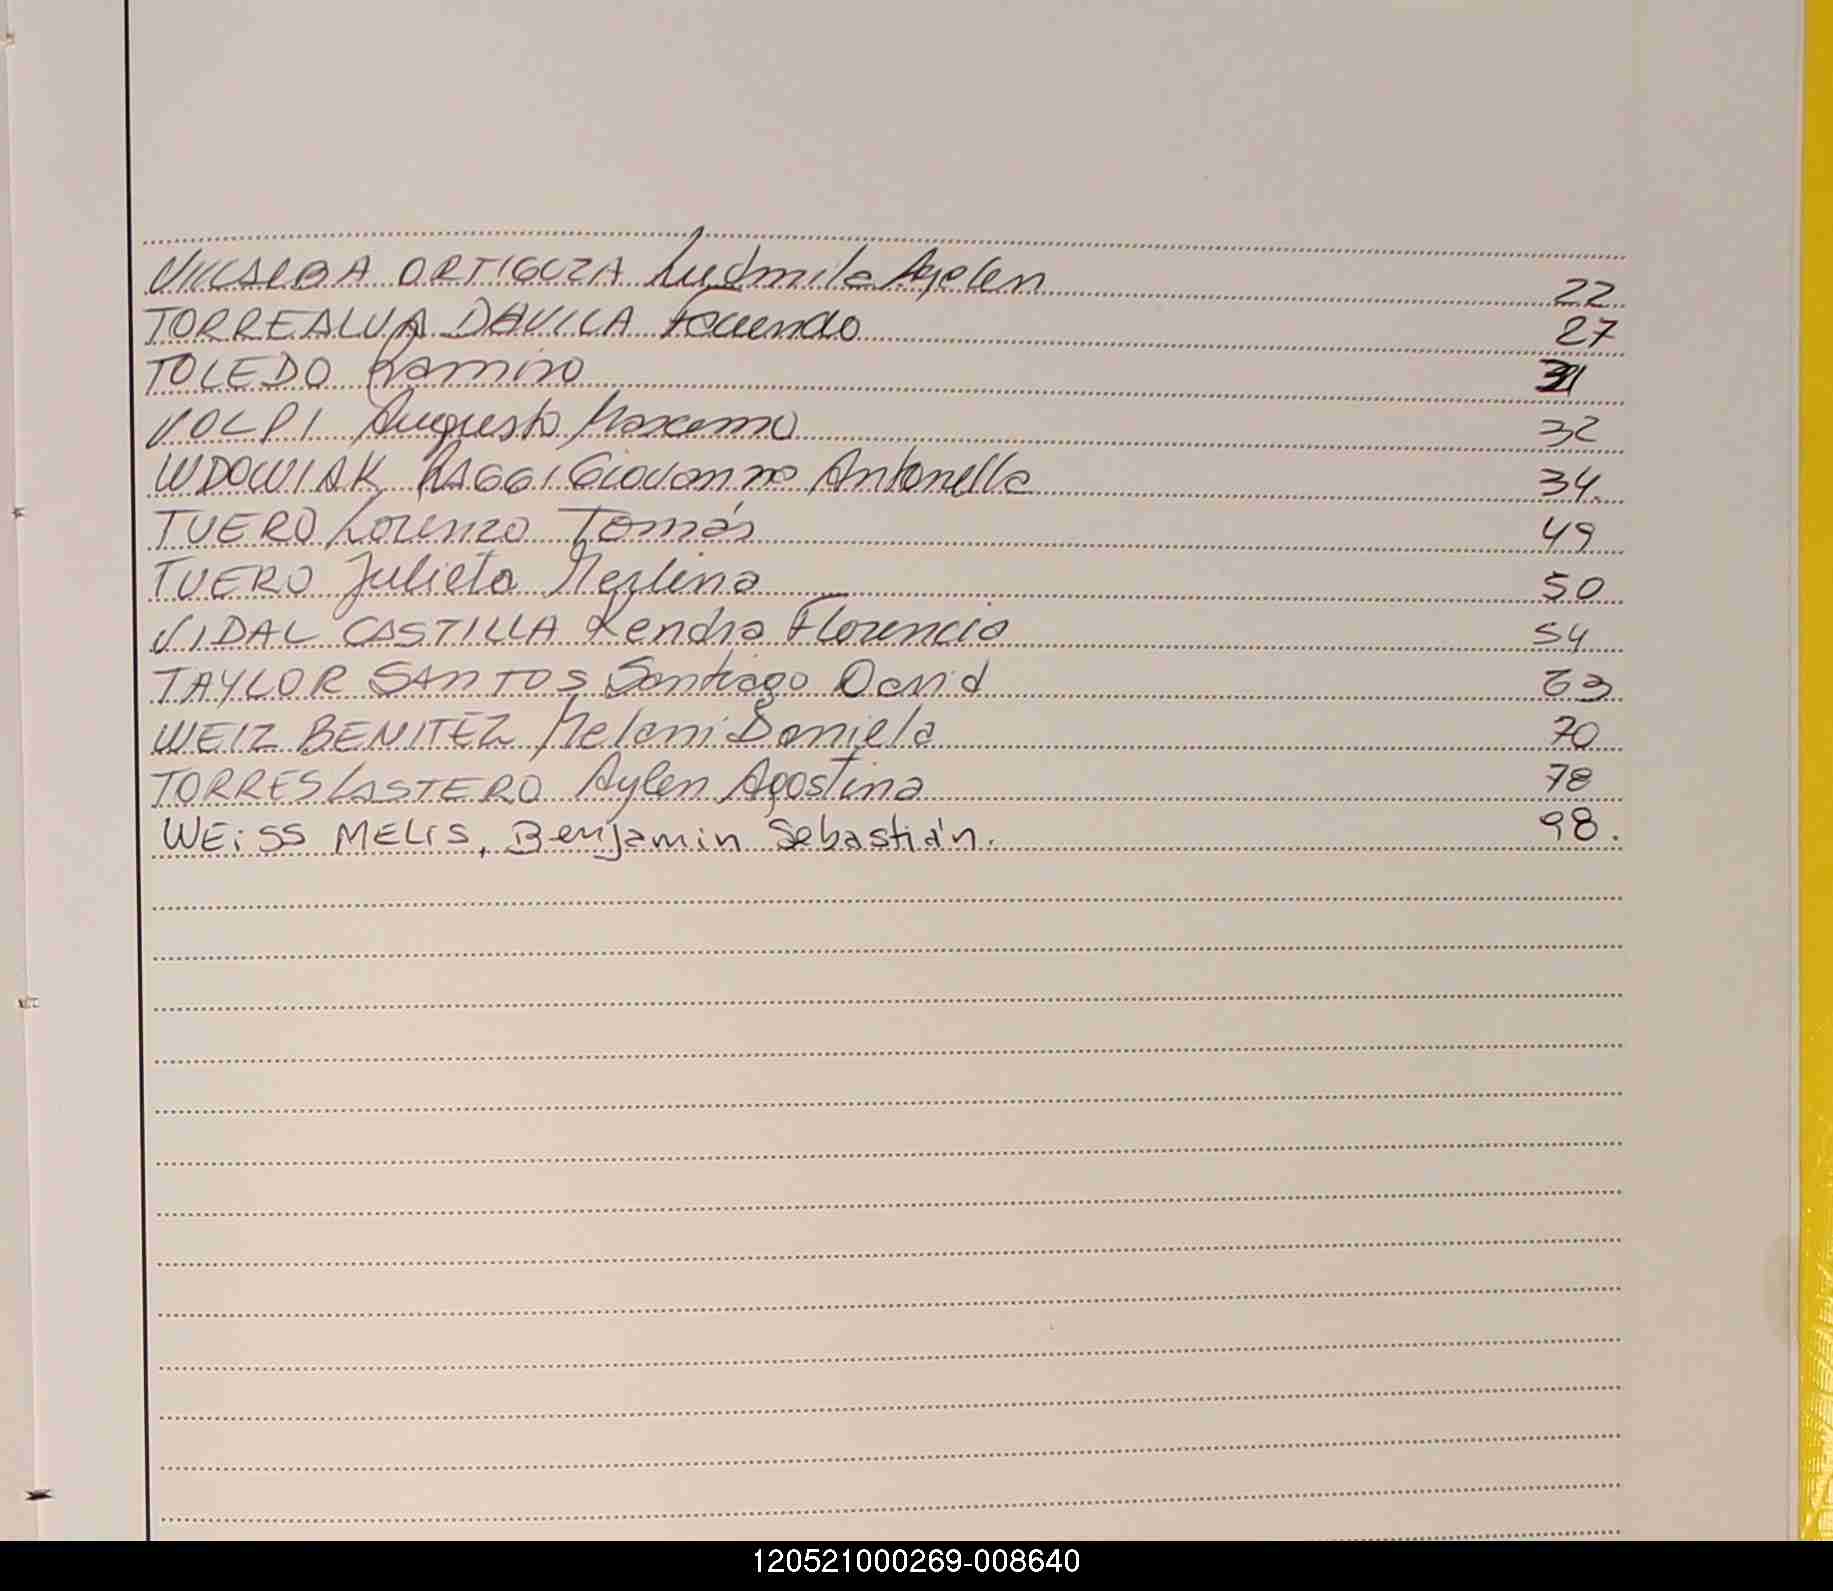 VILLALBA ORTIGOZA Ludmila Ayelen 22
TORREALVA DAVILA Facundo 27
TOLEDO Ramiro
VOLPI Augusto Máximo 32
WDOWIAK RAGGI Giovanna Antonella 34.
TUERO Lorenzo Tomás 49
TUERO Julieta Merlina 50
VIDAL CASTILLA Kendra Florencia 54
TAYLOR SANTOS Santiago David 63
WEIZ BENITEZ Melani Daniela 70
TORRES CASTERO Aylen Agostina 78
WEiSS MELIS, Benjamin Sebastián. 98.
120521000269-008640